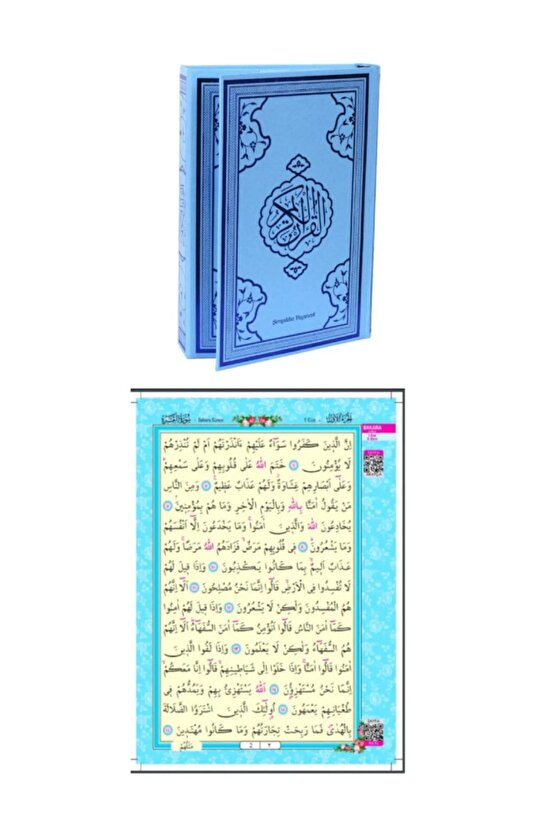 القرآن الكريم
Yayınevi
سُورَةُ الْبَقَرَةِ - Bakara Suresi
1.Cüz - اَلْجُزْءُ الْاَوَّلُ
BAKARA
اِنَّ الَّذ۪ينَ كَفَرُوا سَوَٓاءٌ عَلَيْهِمْ ءَاَنْذَرْتَهُمْ اَمْ لَمْ تُنْذِرْهُمْ
لَا يُؤْمِنُونَ ﴿٦﴾ خَتَمَ اللّٰهُ عَلٰى قُلُوبِهِمْ وَعَلٰى سَمْعِهِمْ
وَعَلٰٓى اَبْصَارِهِمْ غِشَاوَةٌ وَلَهُمْ عَذَابٌ عَظ۪يمٌ ﴿٧﴾ وَمِنَ النَّاسِ
مَنْ يَقُولُ اٰمَنَّا بِاللّٰهِ وَبِالْيَوْمِ الْاٰخِرِ وَمَا هُمْ بِمُؤْمِن۪ينَ ﴿٨﴾
يُخَادِعُونَ اللّٰهَ وَالَّذ۪ينَ اٰمَنُوا وَمَا يَخْدَعُونَ اِلَّٓا اَنْفُسَهُمْ
وَمَا يَشْعُرُونَ ﴿٩﴾ ف۪ي قُلُوبِهِمْ مَرَضٌ فَزَادَهُمُ اللّٰهُ مَرَضًا وَلَهُمْ
عَذَابٌ اَل۪يمٌ بِمَا كَانُوا يَكْذِبُونَ ﴿١٠﴾ وَاِذَا ق۪يلَ لَهُمْ
لَا تُفْسِدُوا فِي الْاَرْضِ قَالُٓوا اِنَّمَا نَحْنُ مُصْلِحُونَ ﴿١١﴾ اَلَٓا اِنَّهُمْ
هُمُ الْمُفْسِدُونَ وَلٰكِنْ لَا يَشْعُرُونَ ﴿١٢﴾ وَاِذَا ق۪يلَ لَهُمْ اٰمِنُوا
كَمَٓا اٰمَنَ النَّاسُ قَالُٓوا اَنُؤْمِنُ كَمَٓا اٰمَنَ السُّفَهَٓاءُ اَلَٓا اِنَّهُمْ
هُمُ السُّفَهَٓاءُ وَلٰكِنْ لَا يَعْلَمُونَ ﴿١٣﴾ وَاِذَا لَقُوا الَّذ۪ينَ
اٰمَنُوا قَالُٓوا اٰمَنَّا وَاِذَا خَلَوْا اِلٰى شَيَاط۪ينِهِمْ قَالُٓوا اِنَّا مَعَكُمْ
اِنَّمَا نَحْنُ مُسْتَهْزِؤُ۫نَ ﴿١٤﴾ اَللّٰهُ يَسْتَهْزِئُ بِهِمْ وَيَمُدُّهُمْ ف۪ي
طُغْيَانِهِمْ يَعْمَهُونَ ﴿١٥﴾ اُو۬لٰٓئِكَ الَّذ۪ينَ اشْتَرَوُا الضَّلَالَةَ
بِالْهُدٰى فَمَا رَبِحَتْ تِجَارَتُهُمْ وَمَا كَانُوا مُهْتَد۪ينَ ﴿١٦﴾
مَثَلُهُمْ
2 ٢